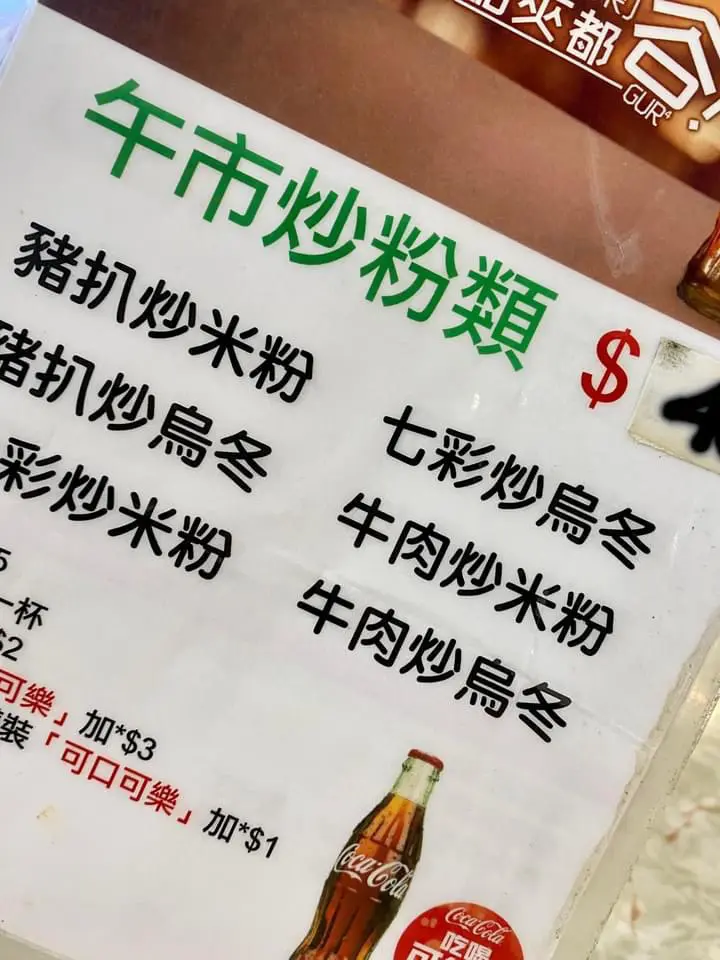 夾都
GUR⁴
午市炒粉類 $
豬扒炒米粉
豬扒炒烏冬
彩炒米粉
七彩炒烏冬
牛肉炒米粉
牛肉炒烏冬
5
一杯
$2
可樂」加*$3
裝「可口可樂」加*$1
Coca-Cola
Coca-Cola
吃喝